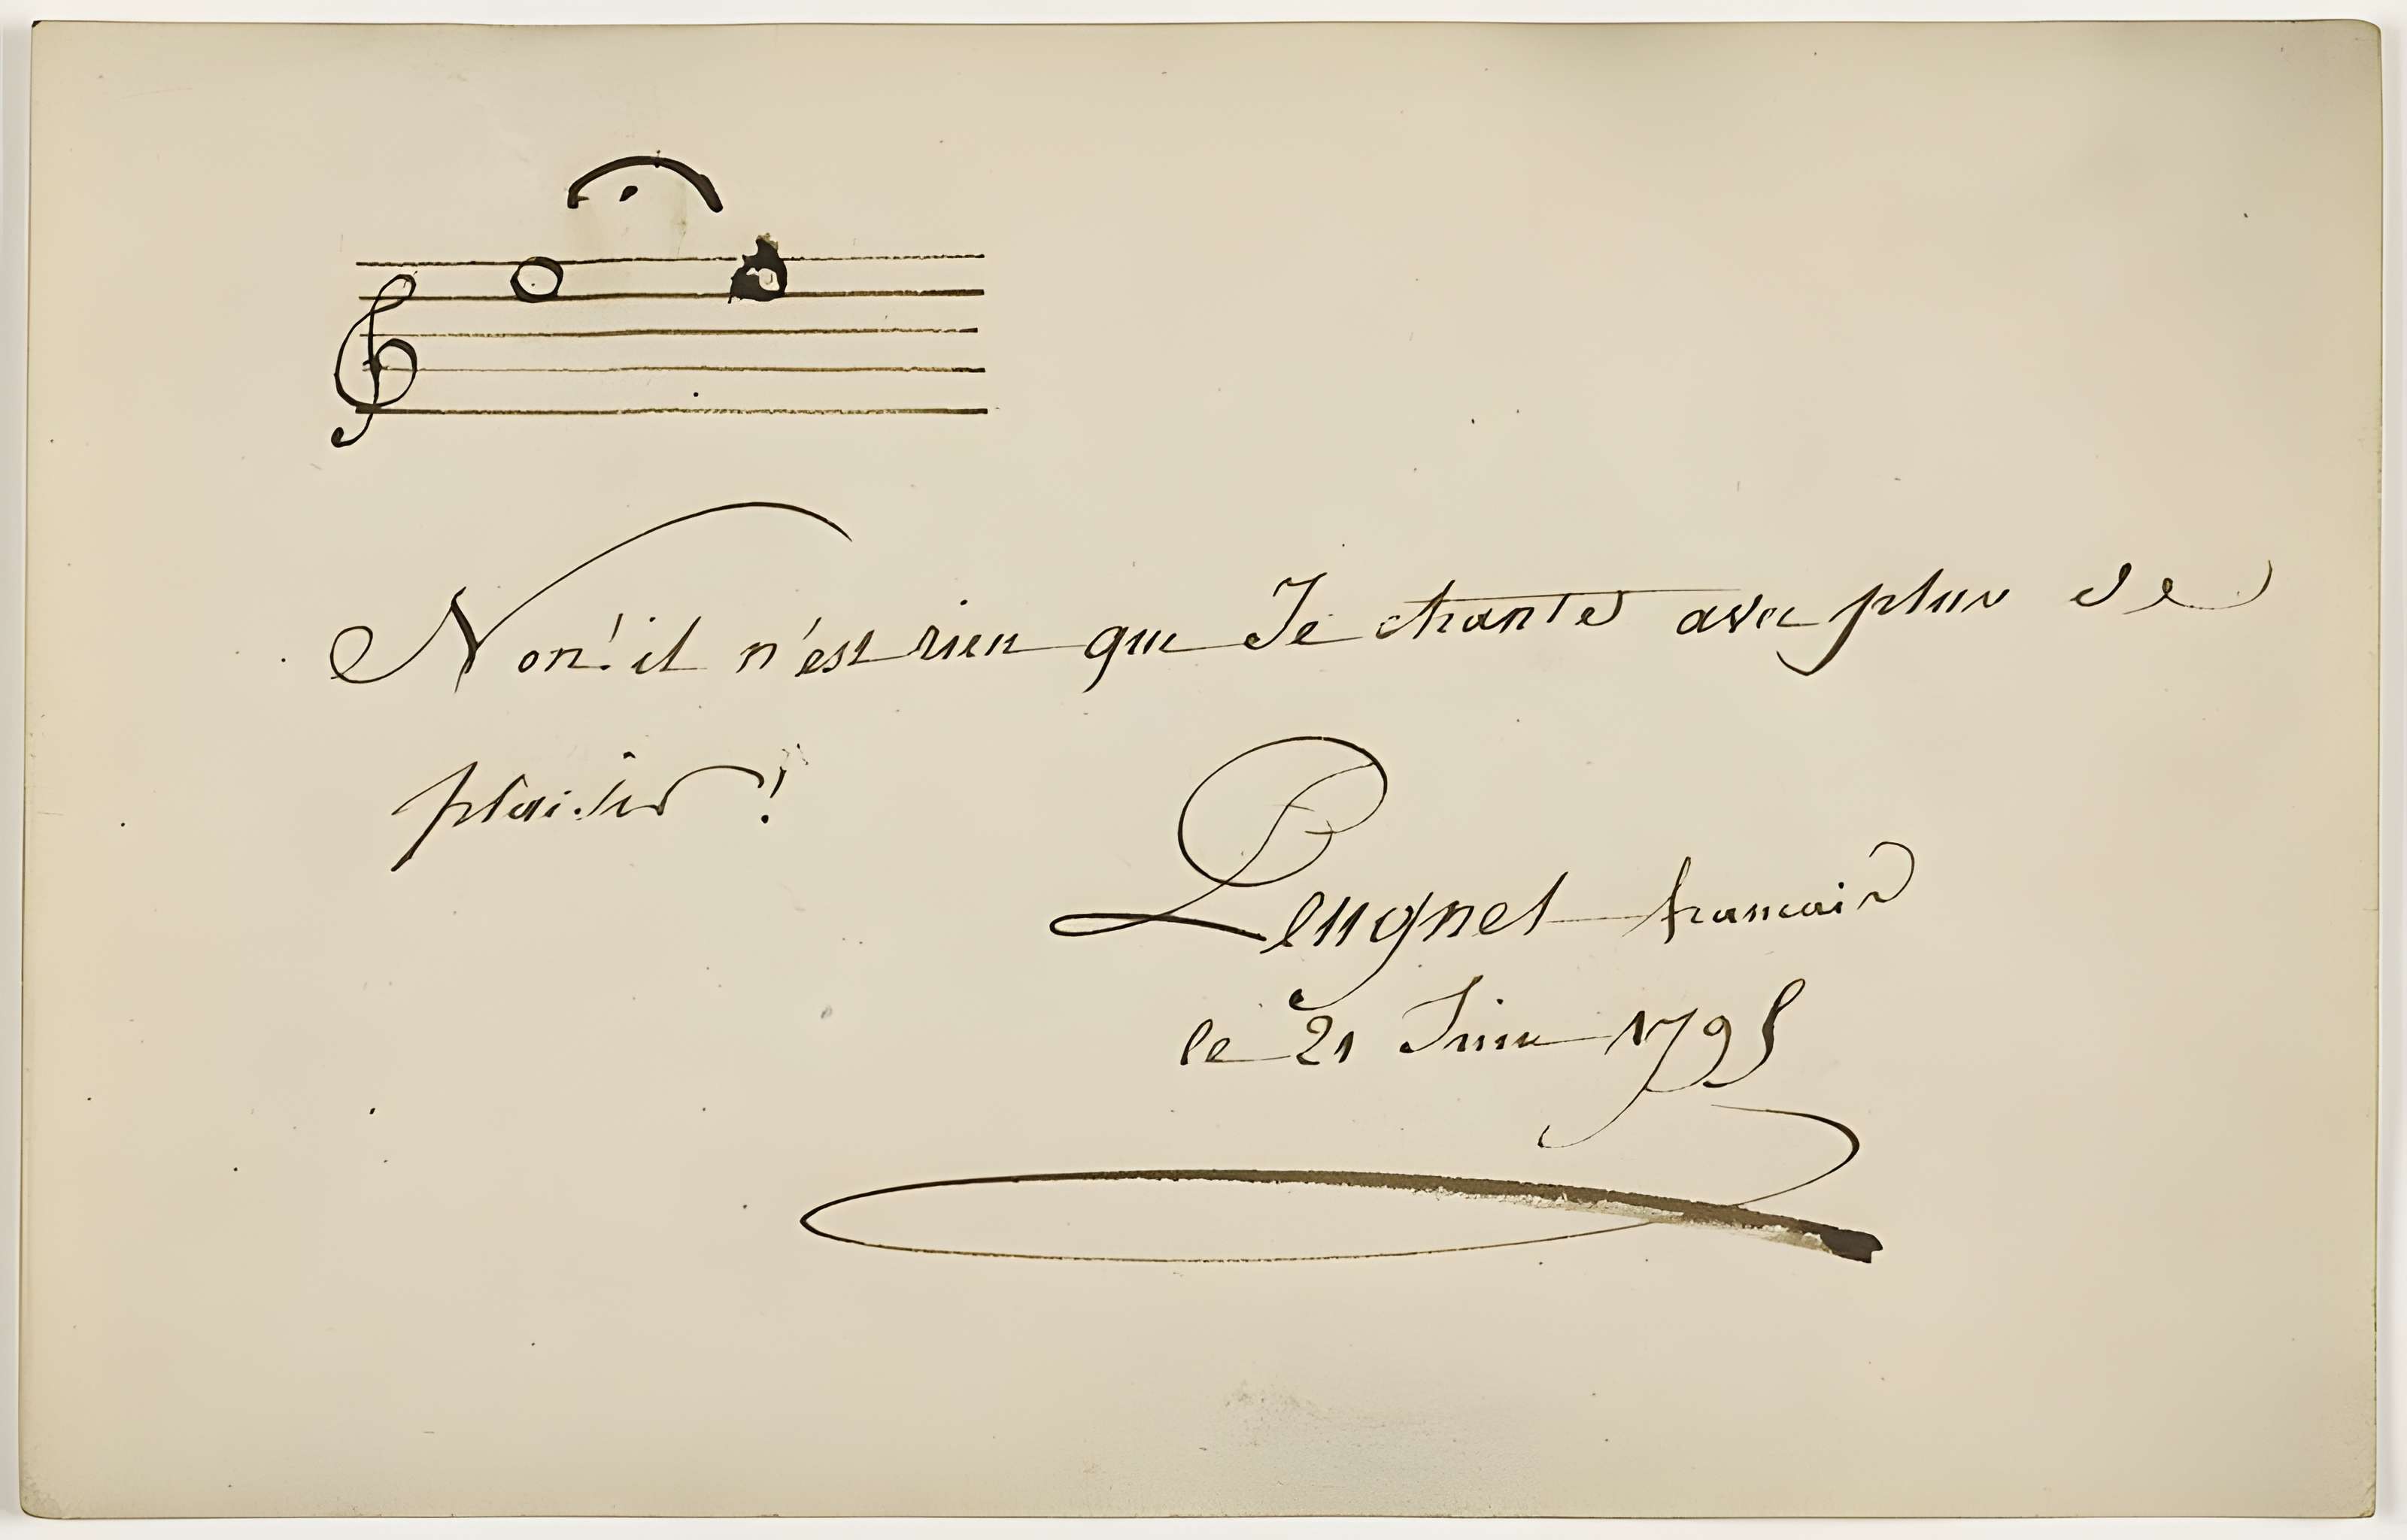 Non! il n'est rien que Je chante avec plus de
plaisir !
Peugnet francais
le 21 Juin 1795